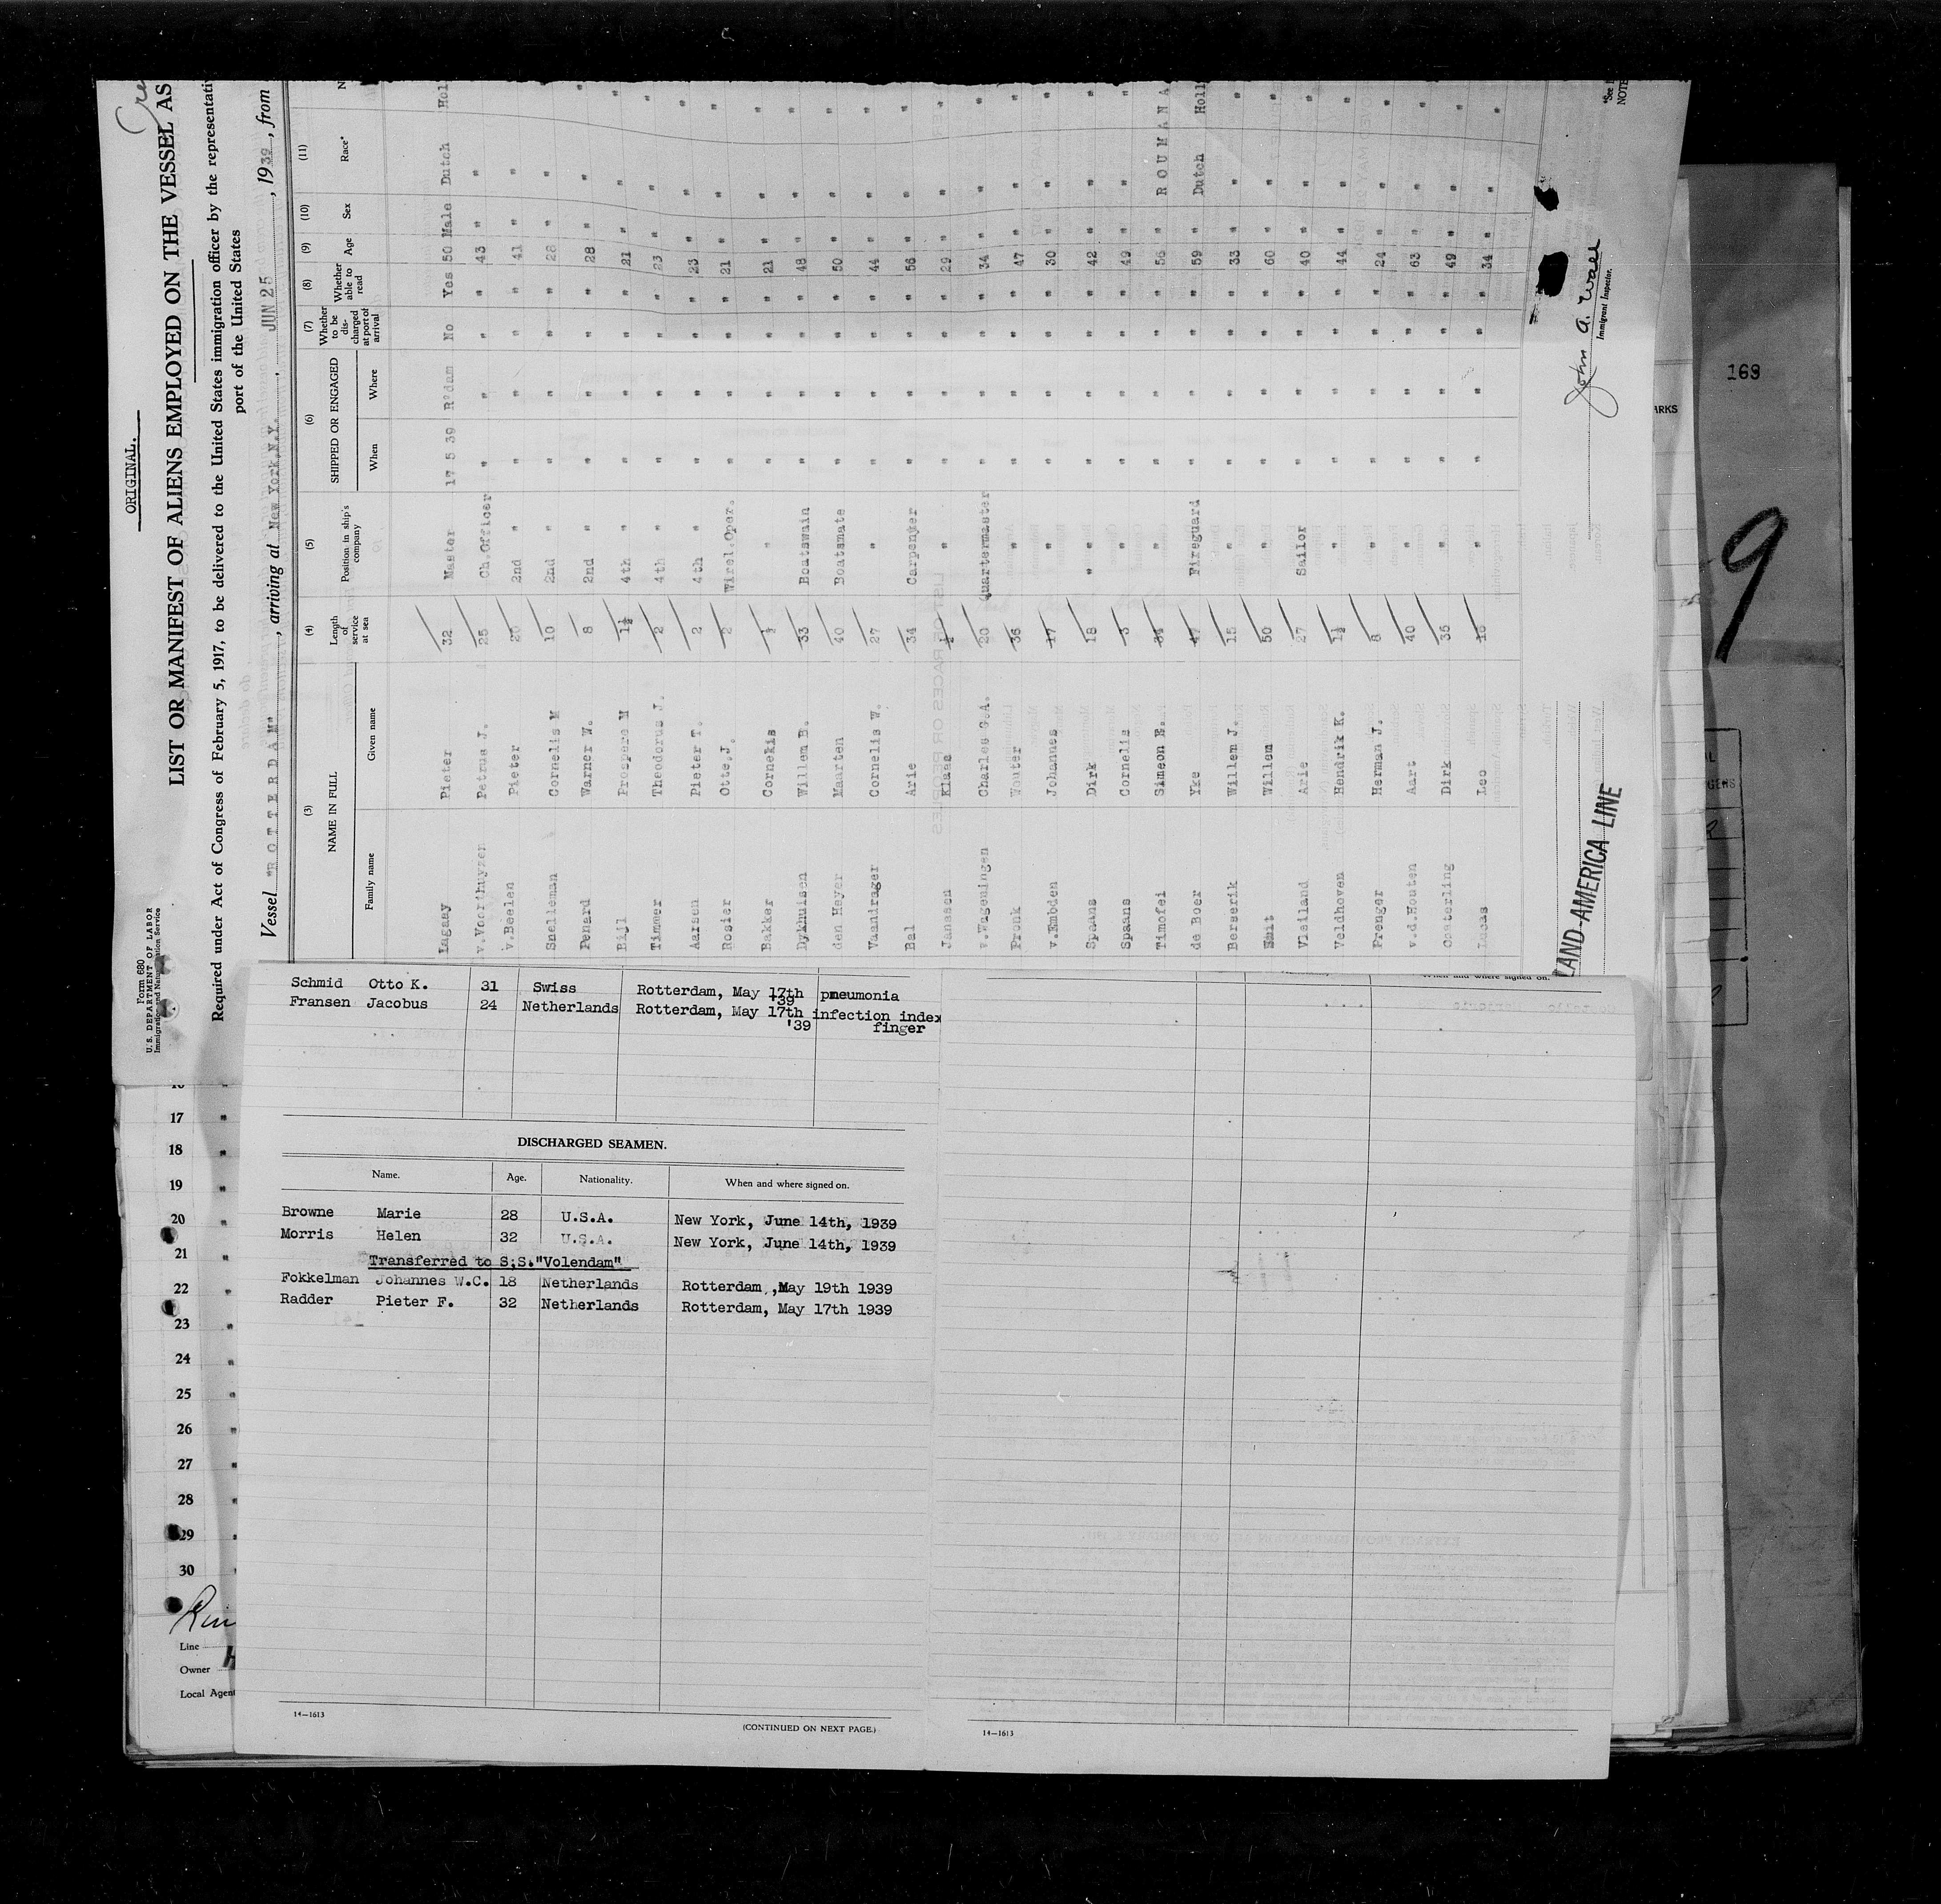 ORIGINAL.
LIST OR MANIFEST OF ALIENS EMPLOYED ON THE VESSEL AS
Required under Act of Congress of February 5, 1917, to be delivered to the United States immigration officer by the representati
port of the United States
Form 680
U. S. DEPARTMENT OF LABOR
Immigration and Naturalization Service
Vessel "ROTTERDAM", arriving at New York, N.Y., JUN 25, 1939, from
(3) (4) (5) (6) (7) (8) (9) (10) (11)
NAME IN FULL Length of service at sea Position in ship's company SHIPPED OR ENGAGED Whether to be discharged at port of arrival Whether able to read Age Sex Race* N
Family name Given name When Where
Lagaay Pieter 32 Master 17 5 39 R'dam No Yes 50 Male Dutch Holl
v.Voorthuyzen Petrus J. 25 Ch.Officer " " " " 43 " "
v.Beelen Pieter 20 2nd " " " " " 41 " "
Snelleman Cornelis M 10 2nd " " " " " 28 " "
Penard Warner W. 8 2nd " " " " " 28 " " "
Bijl Prospere M 1½ 4th " " " " " 21 " " "
Timmer Theodorus J. 2 4th " " " " " 23 " " "
Aarsen Pieter T. 2 4th " " " " " 23 " " "
Rosier Otte J. 2 Wirel.Oper. " " " " 21 " " "
Bakker Cornekis " " " " " 21 " " "
Dykhuisen Willem B. 33 Boatswain " " " " 48 " " "
den Heyer Maarten 40 Boatsmate " " " " 50 " " "
Vaandrager Cornelis W. 27 " " " " " 44 " " "
Bal Arie 34 Carpenter " " " " 56 " " "
Janssen Klaas " " " " " 29 " " "
v.Wageningen Charles G.A. 20 Quartermaster " " " " 34 " " "
Pronk Wouter 36 " " " " " 47 " " "
v.Embden Johannes 17 " " " " " 30 " " "
Spaans Dirk 18 " " " " " 42 " " "
Spaans Cornelis 3 " " " " " 49 " " "
Timofei Simeon E. 34 " " " " " 56 " ROUMANA
de Boer Yke 47 Fireguard " " " " 59 " Dutch Holl
Berserik Willem J. 15 " " " " " 33 " " "
Smit Willem 50 " " " " " 60 " " "
Vieiland Arie 27 Sailor " " " " 40 " " "
Veldhoven Hendrik K. 1½ " " " " " 44 " " "
Prenger Herman J. 8 " " " " " 24 " " "
v.d.Houten Aart 40 " " " " " 63 " " "
Costerling Dirk 36 " " " " " 49 " " "
Leo " " " " " 34 " " "
LAND-AMERICA LINE
John A. Wall
Immigrant Inspector.
*See
NOTE
169
ARKS
9
Schmid Otto K. 31 Swiss Rotterdam, May 17th '39 pneumonia
Fransen Jacobus 24 Netherlands Rotterdam, May 17th infection index
'39 finger
DISCHARGED SEAMEN.
Name. Age. Nationality. When and where signed on.
Browne Marie 28 U.S.A. New York, June 14th, 1939
Morris Helen 32 U.S.A. New York, June 14th, 1939
Transferred to S.S."Volendam"
Fokkelman Johannes W.C. 18 Netherlands Rotterdam ,May 19th 1939
Radder Pieter F. 32 Netherlands Rotterdam, May 17th 1939
14—1613
(CONTINUED ON NEXT PAGE.)
When and where signed on.
14—1613
16
17
18
19
20
21
22
23
24
25
26
27
28
29
30
Line
Owner
Local Agent